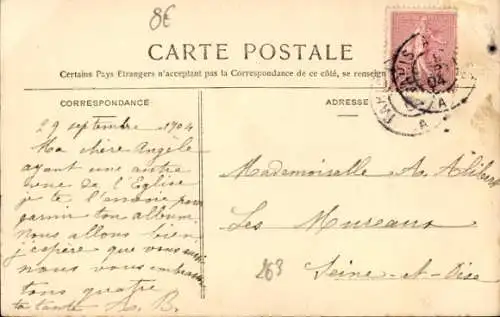 8€
CARTE POSTALE
Certains Pays Etrangers n'acceptant pas la Correspondance de ce côté, se renseign
CORRESPONDANCE
ADRESSE
29 septembre 1904
Ma chère Angèle
ayant une autre
vue de l'Eglise
je te l'envoie pour
garnir ton album.
Nous allons bien
j'espère que vous aussi
nous vous embrassons
tous quatre
ta tante A. B.
Mademoiselle A.
Les Mureaux
Seine-et-Oise
263
PARIS
04